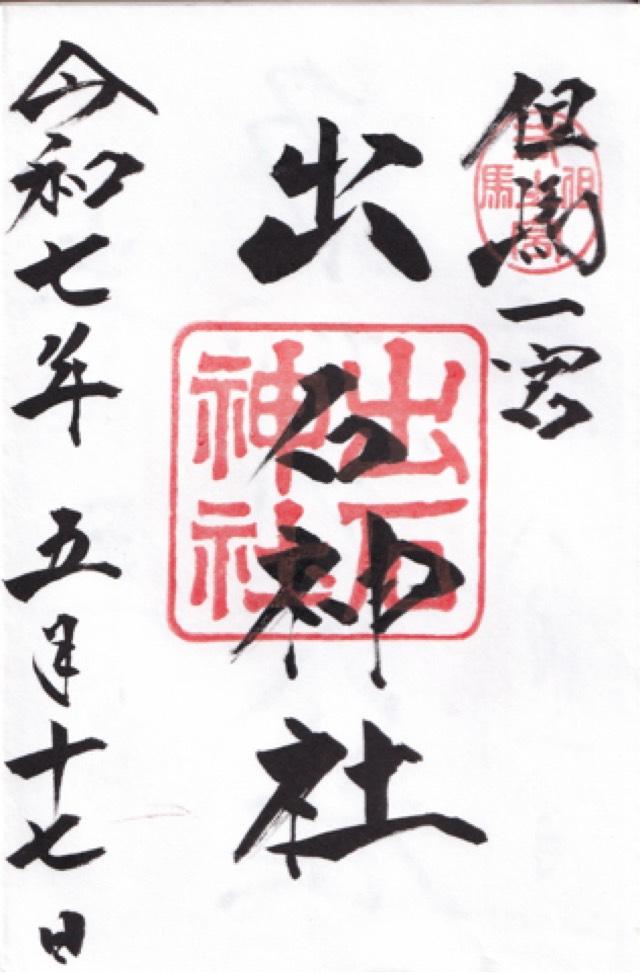 但馬一宮
出石神社
出石
神社
令和七年 五月十七日